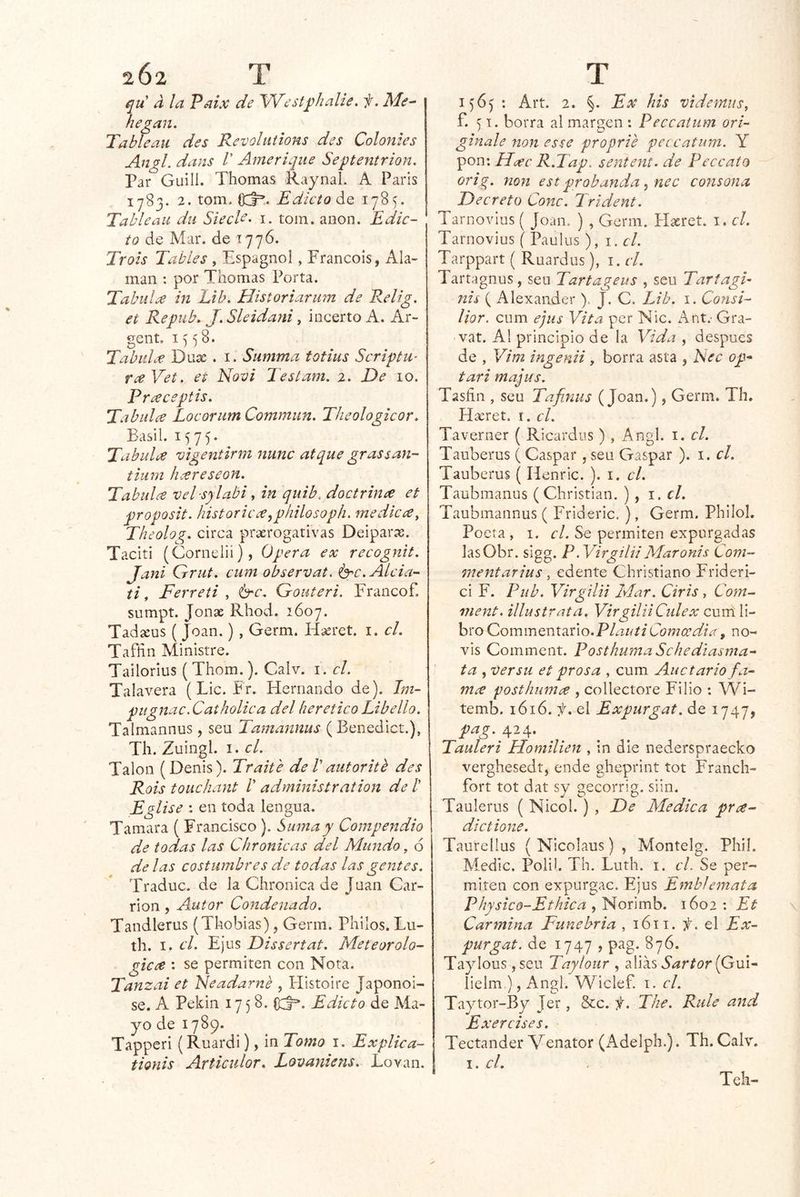 262 T
qu' à la Paix de Westphalie. ℣. Me-
hegan.
Tableau des Revolutions des Colonies
Angl. dans l' Amerique Septentrion.
Par Guill. Thomas Raynal. A Paris
1783. 2. tom. ☞. Edicto de 1785.
Tableau du Siecle. 1. tom. anon. Edic-
to de Mar. de 1776.
Trois Tables, Espagnol, Francois, Ala-
man : por Thomas Porta.
Tabulæ in Lib. Historiarum de Relig.
et Repub. J. Sleidani, incerto A. Ar-
gent. 1558.
Tabulæ Duæ . 1. Summa totius Scriptu-
ræ Vet. et Novi Testam. 2. De 10.
Præceptis.
Tabulæ Locorum Commun. Theologicor.
Basil. 1575.
Tabulæ vigentirm nunc atque grassan-
tium hæreseon.
Tabulæ vel sylabi, in quib. doctrinæ et
proposit. historicæ, philosoph. medicæ,
Theolog. circa prærogativas Deiparæ.
Taciti (Cornelii), Opera ex recognit.
Jani Grut. cum observat. &c. Alcia-
ti, Ferreti , &c. Gouteri. Francof.
sumpt. Jonæ Rhod. 1607.
Tadæus ( Joan. ) , Germ. Hæret. 1. cl.
Taffin Ministre.
Tailorius ( Thom. ). Calv. 1. cl.
Talavera (Lic. Fr. Hernando de). Im-
pugnac. Catholica del heretico Libello.
Talmannus, seu Tamannus ( Benedict.),
Th. Zuingl. 1. cl.
Talon (Denis). Traitè de l' autoritè des
Rois touchant l' administration de l'
Eglise : en toda lengua.
Tamara ( Francisco ). Suma y Compendio
de todas las Chronicas del Mundo, ó
de las costumbres de todas las gentes.
Traduc. de la Chronica de Juan Car-
rion , Autor Condenado.
Tandlerus (Thobias), Germ. Philos. Lu-
th. 1. cl. Ejus Dissertat. Meteorolo-
gicæ : se permiten con Nota.
Tanzai et Neadarnè , Histoire Japonoi-
se. A Pekin 1758. ☞. Edicto de Ma-
yo de 1789.
Tapperi (Ruardi), in Tomo 1. Explica-
tionis Articulor. Lovaniens. Lovan.
T
1565 : Art. 2. §. Ex his videmus,
f. 51. borra al margen : Peccatum ori-
ginale non esse propriè peccatum. Y
pon: Hæc R.Tap. sentent. de Peccato
orig. non est probanda, nec consona
Decreto Conc. Trident.
Tarnovius ( Joan. ) , Germ. Hæret. 1. cl.
Tarnovius ( Paulus ), 1. cl.
Tarppart ( Ruardus ), 1. cl.
Tartagnus, seu Tartageus , seu Tartagi-
nis ( Alexander ). J. C. Lib. 1. Consi-
lior. cum ejus Vita per Nic. Ant. Gra-
vat. Al principio de la Vida , despues
de , Vim ingenii, borra asta , Nec op-
tari majus.
Tasfin , seu Tafinus (Joan.), Germ. Th.
Hæret. 1. cl.
Taverner ( Ricardus ) , Angl. 1. cl.
Tauberus ( Caspar , seu Gaspar ). 1. cl.
Tauberus ( Henric. ). 1. cl.
Taubmanus ( Christian. ) , 1. cl.
Taubmannus ( Frideric. ), Germ. Philol.
Poeta , 1. cl. Se permiten expurgadas
las Obr. sigg. P. Virgilii Maronis Com-
mentarius, edente Christiano Frideri-
ci F. Pub. Virgilii Mar. Ciris , Com-
ment. illustrata. Virgilii Culex cum li-
bro Commentario. Plauti Comœdia, no-
vis Comment. Posthuma Schediasma-
ta , versu et prosa , cum Auctario fa-
mæ posthumæ , collectore Filio : Wi-
temb. 1616. ℣. el Expurgat. de 1747,
pag. 424.
Tauleri Homilien , in die nederspraecko
verghesedt, ende gheprint tot Franch-
fort tot dat sy gecorrig. siin.
Taulerus ( Nicol. ) , De Medica præ-
dictione.
Taurellus ( Nicolaus ) , Montelg. Phil.
Medic. Polil. Th. Luth. 1. cl. Se per-
miten con expurgac. Ejus Emblemata
Physico-Ethica , Norimb. 1602 : Et
Carmina Funebria , 1611. ℣. el Ex-
purgat. de 1747 , pag. 876.
Taylous, seu Taylour , aliàs Sartor (Gui-
lielm.), Angl. Wiclef. 1. cl.
Taytor-By Jer, &c. ℣. The. Rule and
Exercises.
Tectander Venator (Adelph.). Th. Calv.
1. cl.
Teh-